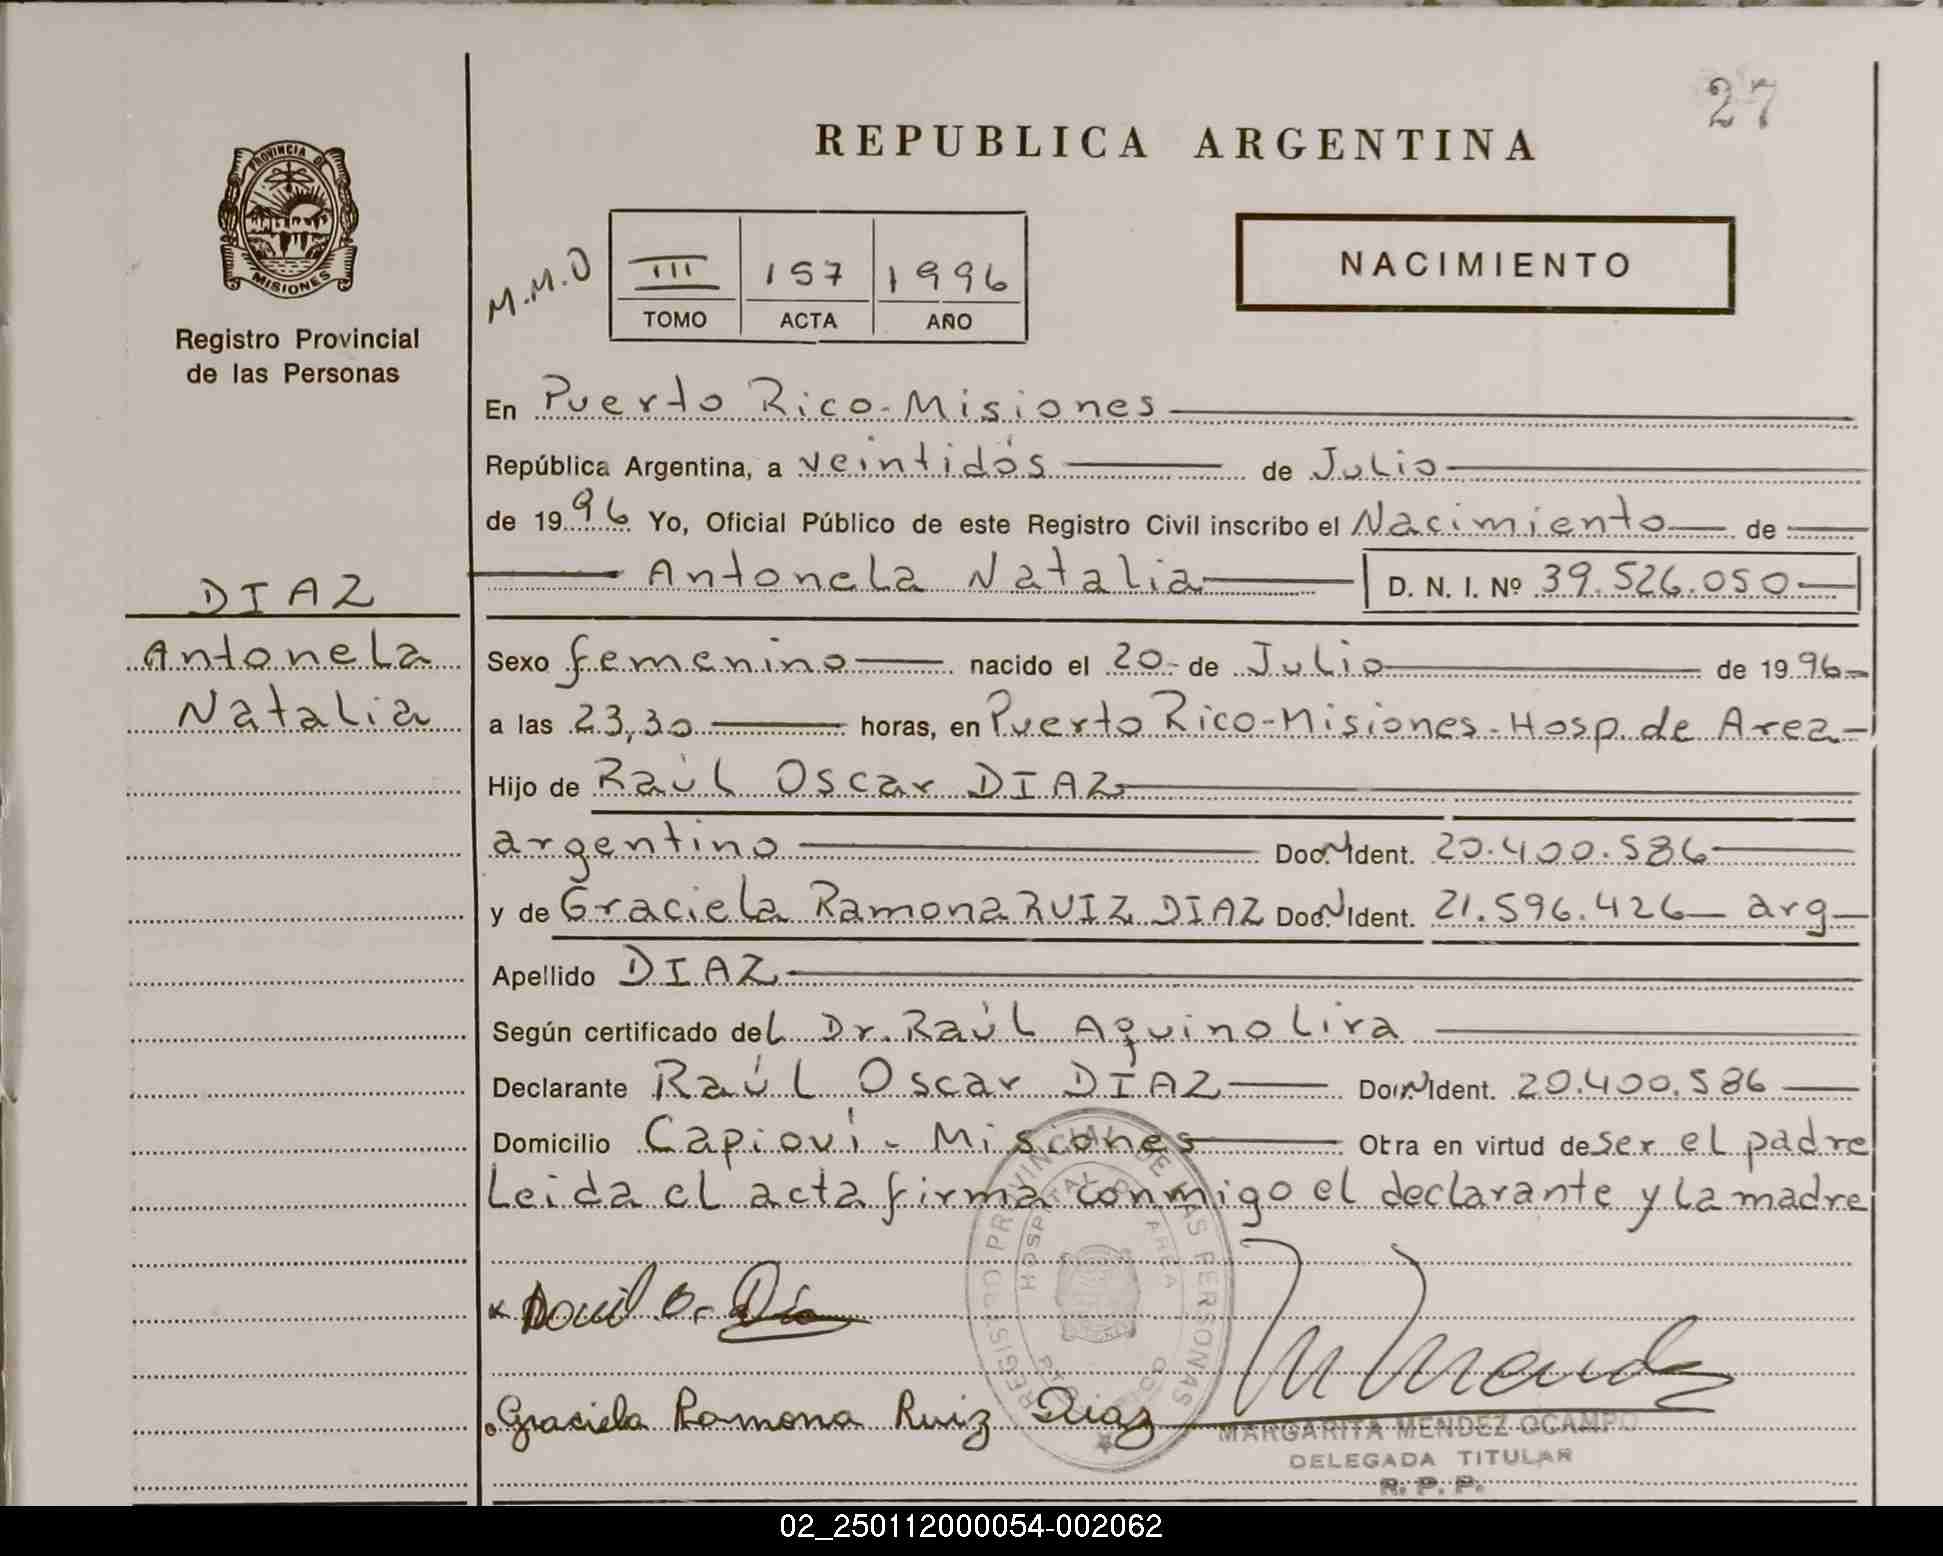 27
REPUBLICA ARGENTINA
PROVINCIA DE
MISIONES
Registro Provincial
de las Personas
M.M.O
III 157 1996
TOMO ACTA AÑO
NACIMIENTO
En Puerto Rico-Misiones
República Argentina, a veintidós de Julio
de 1996 Yo, Oficial Público de este Registro Civil inscribo el Nacimiento de
Antonela Natalia D. N. I. Nº 39.526.050
DIAZ
Antonela
Natalia
Sexo femenino nacido el 20 de Julio de 1996
a las 23,30 horas, en Puerto Rico-Misiones-Hosp. de Area
Hijo de Raúl Oscar DIAZ
argentino Doc. N Ident. 20.400.586
y de Graciela Ramona RUIZ DIAZ Doc. N Ident. 21.596.426 arg
Apellido DIAZ
Según certificado del Dr. Raúl Aquino Lira
Declarante Raúl Oscar DIAZ Doc. N Ident. 20.400.586
Domicilio Capioví - Misiones Obra en virtud de ser el padre
Leida el acta firma conmigo el declarante y la madre
REGISTRO PROVINCIAL DE LAS PERSONAS
HOSPITAL DE AREA
Graciela Ramona Ruiz Diaz
MARGARITA MENDEZ OCAMPO
DELEGADA TITULAR
R. P. P.
02_250112000054-002062